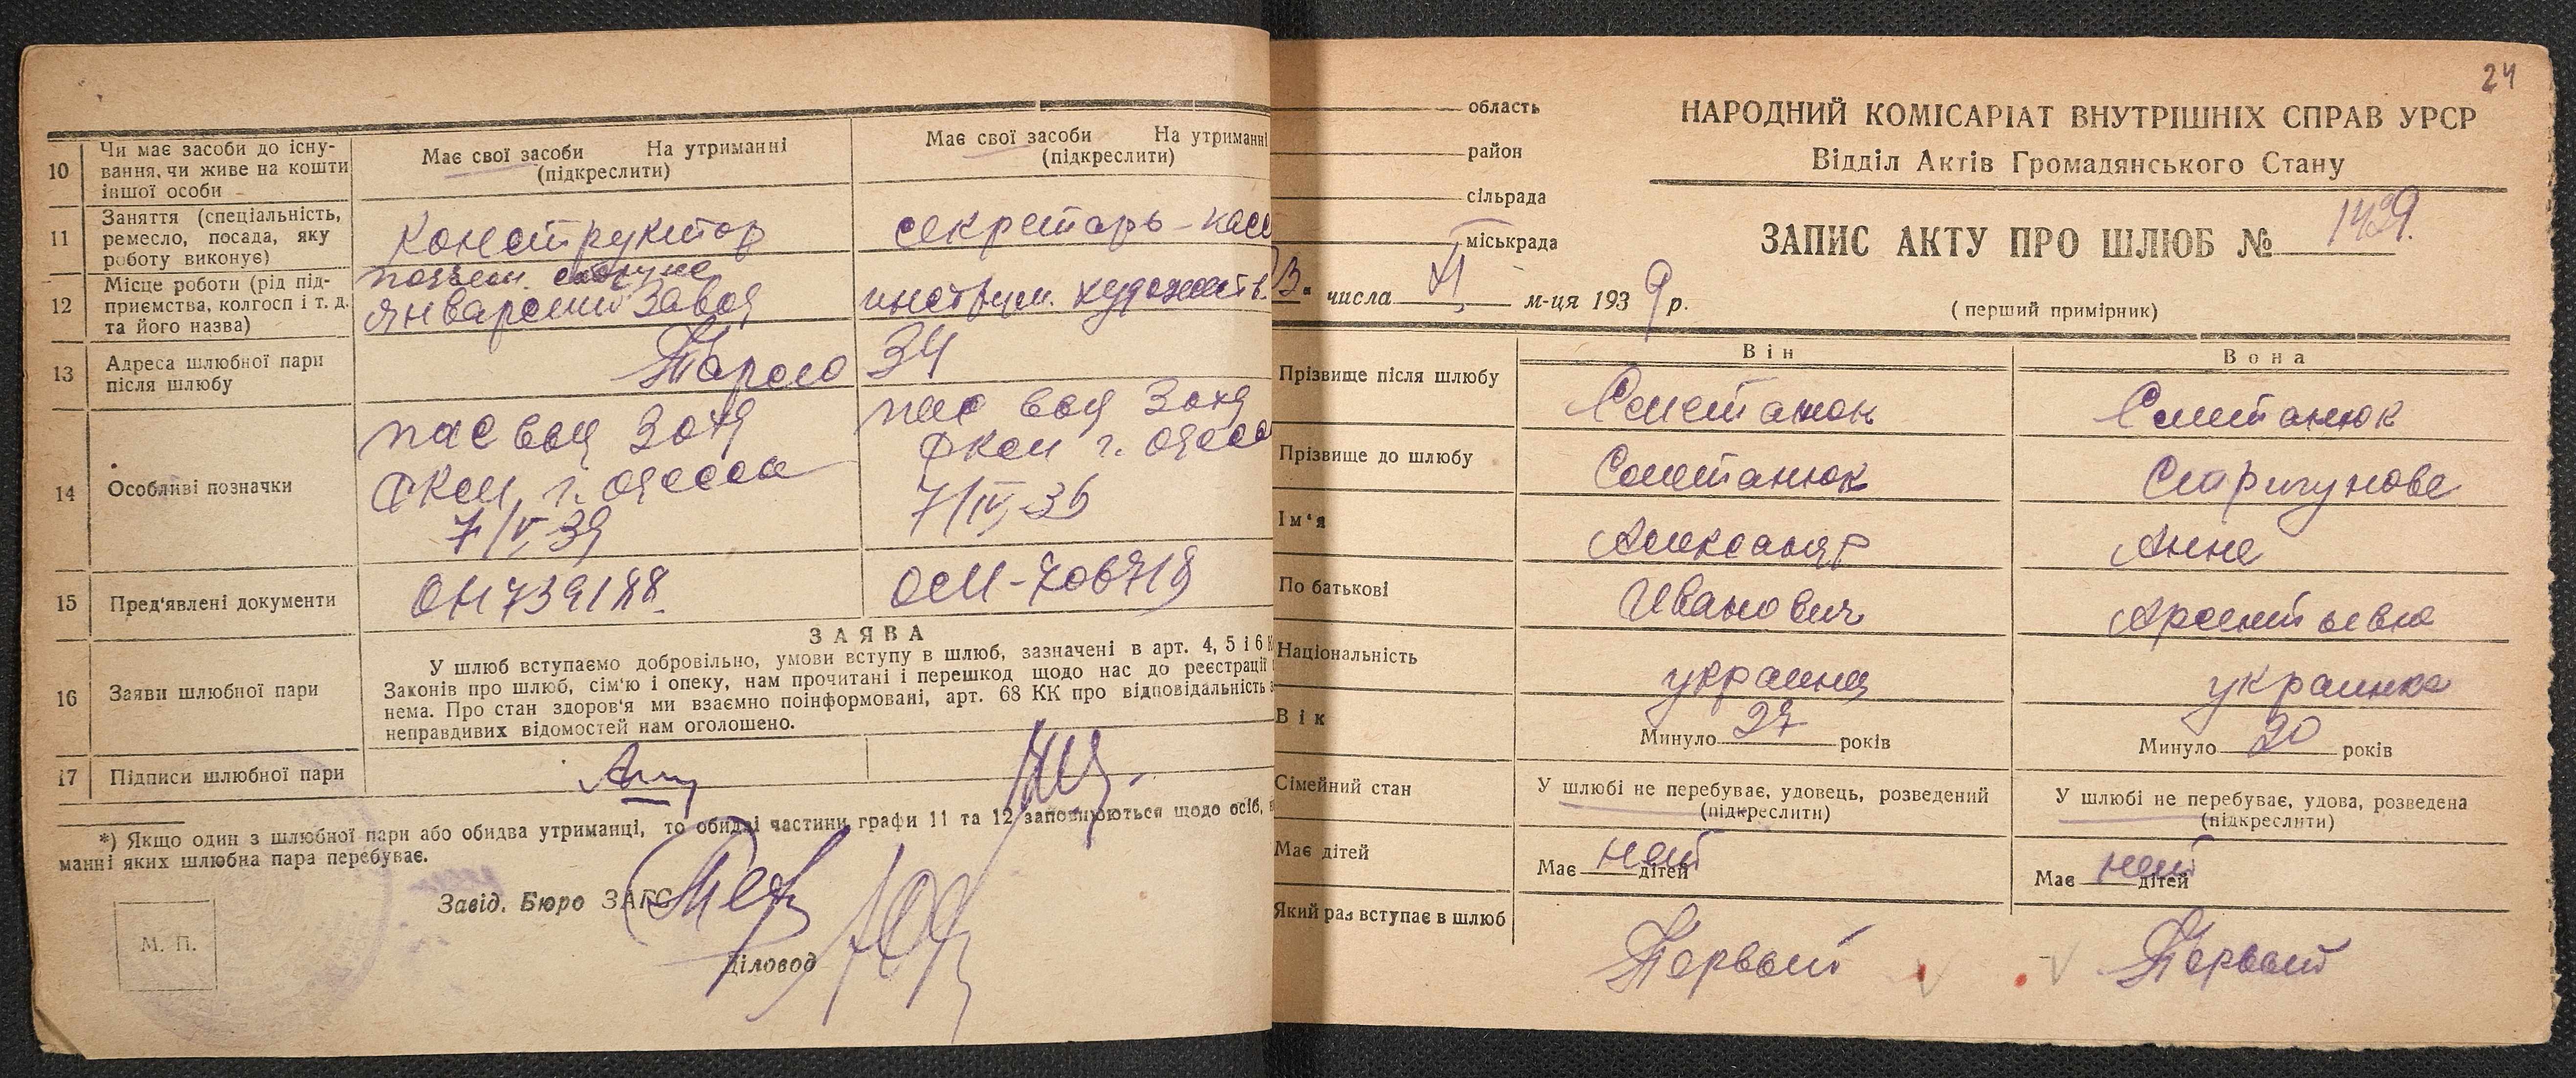 10 Чи має засоби до існу-
вання, чи живе на кошти
іншої особи
Має свої засоби На утриманні
(підкреслити)
Має свої засоби На утриманні
(підкреслити)
11 Заняття (спеціальність,
ремесло, посада, яку
роботу виконує)
Конструктор
секретарь-касс
12 Місце роботи (рід під-
приємства, колгосп і т. д.
та його назва)
январский завод
инструм. художеств.
13 Адреса шлюбної пари
після шлюбу
34
14 Особливі позначки
пас выд
ФКСМ г. Одесса
7/IV 39
пас выд
ФКСМ г. Одесса
7/IV-36
15 Пред'явлені документи
ОН 739188
ОСМ-706719
16 Заяви шлюбної пари
ЗАЯВА
У шлюб вступаємо добровільно, умови вступу в шлюб, зазначені в арт. 4, 5 і 6
Законів про шлюб, сім'ю і опеку, нам прочитані і перешкод щодо нас до реєстрації
нема. Про стан здоров'я ми взаємно поінформовані, арт. 68 КК про відповідальність
неправдивих відомостей нам оголошено.
17 Підписи шлюбної пари
*) Якщо один з шлюбної пари або обидва утриманці, то обидві частини графи 11 та 12 заповнюються щодо осіб,
манні яких шлюбна пара перебуває.
Завід. Бюро ЗАГС
Діловод
М. П.
24
область
район
сільрада
міськрада
3 " числа XI м-ця 1939 р.
НАРОДНИЙ КОМІСАРІАТ ВНУТРІШНІХ СПРАВ УРСР
Відділ Актів Громадянського Стану
ЗАПИС АКТУ ПРО ШЛЮБ № 1439.
(перший примірник)
Він Вона
Прізвище після шлюбу Сметанюк Сметанюк
Прізвище до шлюбу Сметанюк
Ім'я Александр Анна
По батькові Иванович Арсентьевна
Національність украинец украинка
Вік Минуло 27 років Минуло 20 років
Сімейний стан У шлюбі не перебуває, удовець, розведений
(підкреслити)
У шлюбі не перебуває, удова, розведена
(підкреслити)
Має дітей Має нет дітей Має нет дітей
Який раз вступає в шлюб Первый Первый